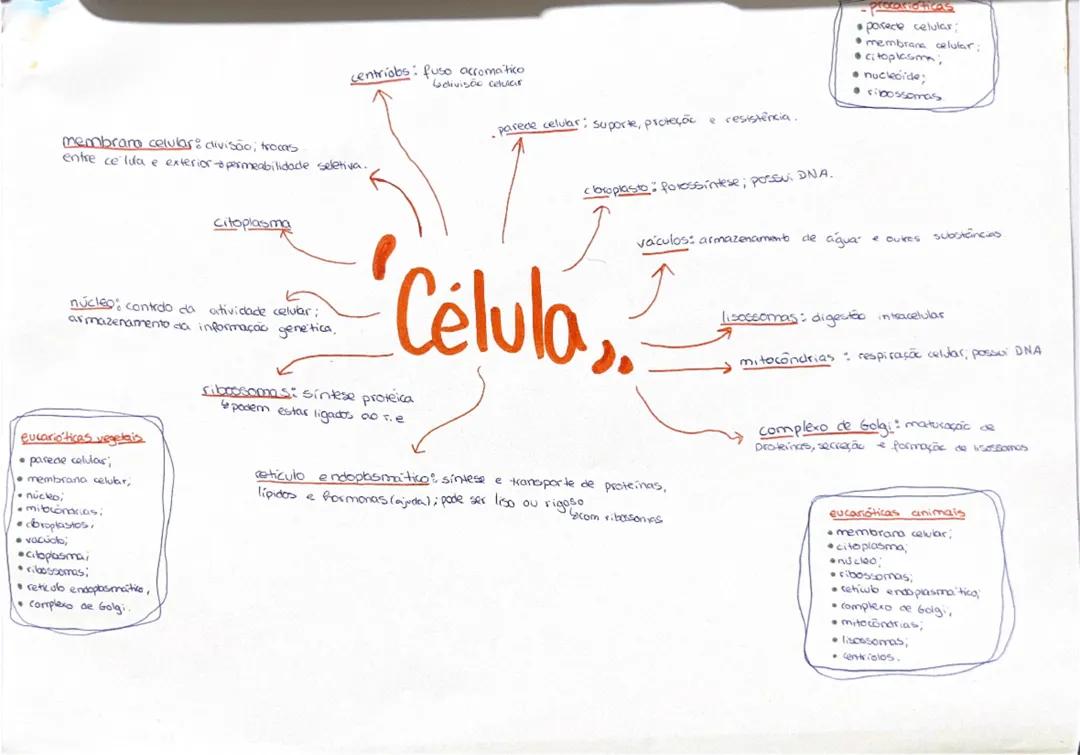 - procarióticas
• parede celular;
• membrana celular;
• citoplasma;
• nucleóide;
• ribossomas.
centríolos: fuso acromático
↳ divisão celular
parede celular: suporte, proteção e resistência.
membrana celular: divisão; trocas
entre célula e exterior → permeabilidade seletiva.
cloroplasto: fotossíntese; possui DNA.
citoplasma
vacúolos: armazenamento de água e outras substâncias
núcleo: controlo da atividade celular;
armazenamento da informação genética.
"Célula"
lisossomas: digestão intracelular
mitocôndrias: respiração celular; possui DNA
ribossomas: síntese protéica
↳ podem estar ligados ao r.e
complexo de Golgi: maturação de
proteínas, secreção e formação de lisossomas
retículo endoplasmático: síntese e transporte de proteínas,
lípidos e hormonas (ajuda); pode ser liso ou rugoso
↳ com ribossomas
eucarióticas vegetais
• parede celular;
• membrana celular;
• núcleo;
• mitocôndrias;
• cloroplastos;
• vacúolo;
• citoplasma;
• ribossomas;
• retículo endoplasmático;
• complexo de Golgi.
eucarióticas animais
• membrana celular;
• citoplasma;
• núcleo;
• ribossomas;
• retículo endoplasmático;
• complexo de Golgi;
• mitocôndrias;
• lisossomas;
• centríolos.